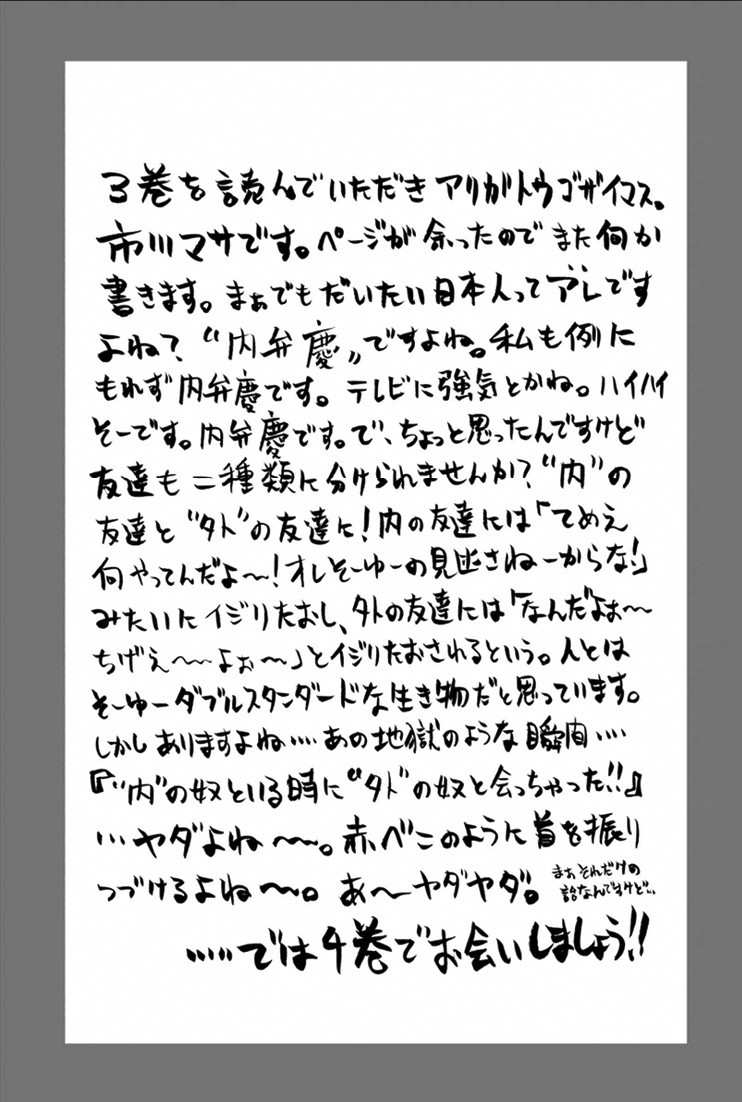 3巻を読んでいただきアリガトウゴザイマス。
市川マサです。ページが余ったのでまた何か
書きます。まぁでもだいたい日本人ってアレです
よね？“内弁慶”ですよね。私も例に
もれず内弁慶です。テレビに強気とかね。ハイハイ
そーです。内弁慶です。で、ちょっと思ったんですけど
友達も二種類に分けられませんか？“内”の
友達と“外”の友達に！内の友達には「てめえ
何やってんだよ〜！オレそーゆーの見逃さねーからな！」
みたいにイジりたおし、外の友達には「なんだよぉ〜
ちげぇ〜〜よぉ〜」とイジりたおされるという。人とは
そーゆーダブルスタンダードな生き物だと思っています。
しかしありますよね……あの地獄のような瞬間……
『“内”の奴といる時に“外”の奴と会っちゃった!!』
…ヤダよね〜〜。赤べこのように首を振り
つづけるよね〜〜。あ〜ヤダヤダ。
まぁそれだけの
話なんですけど…
……では4巻でお会いしましょう!!